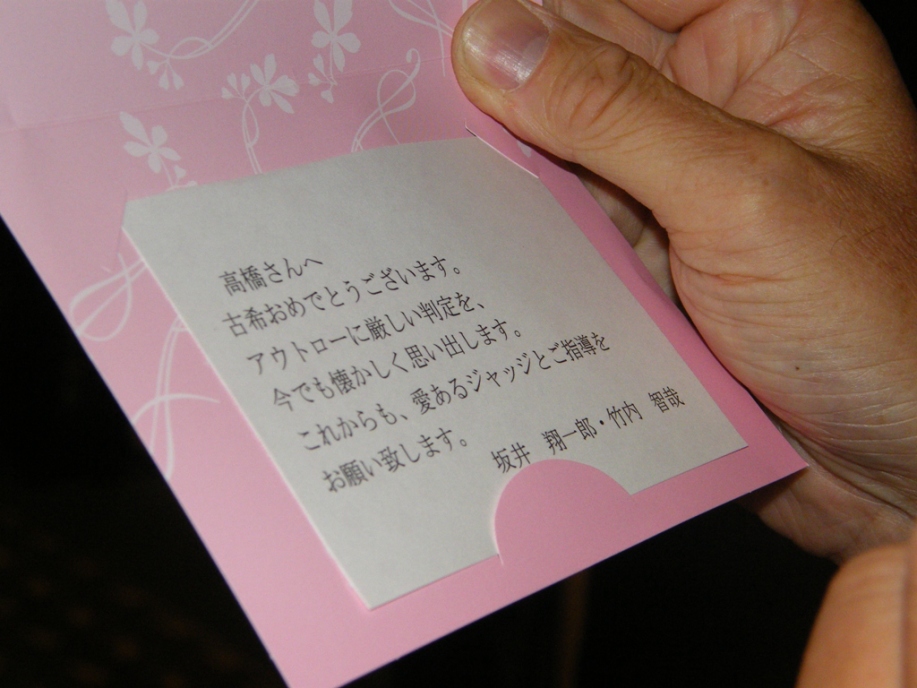 高橋さんへ
古希おめでとうございます。
アウトローに厳しい判定を、
今でも懐かしく思い出します。
これからも、愛あるジャッジとご指導を
お願い致します。
坂井　翔一郎・竹内　智哉